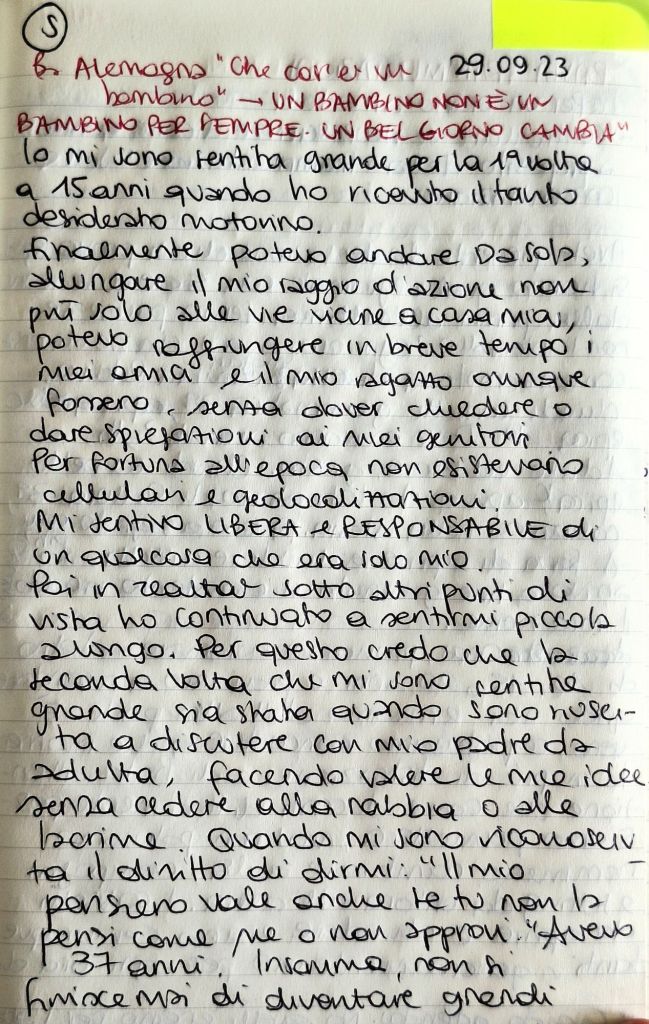 5
B. Alemagna "Che cos'è un 29.09.23
bambino" → UN BAMBINO NON È UN
BAMBINO PER SEMPRE. UN BEL GIORNO CAMBIA"
Io mi sono sentita grande per la 1ª volta
a 15 anni quando ho ricevuto il tanto
desiderato motorino.
Finalmente potevo andare DA sola,
allungare il mio raggio d'azione non
più solo alle vie vicine a casa mia,
potevo raggiungere in breve tempo i
miei amici e il mio ragazzo ovunque
fossero, senza dover chiedere o
dare spiegazioni ai miei genitori
Per fortuna all'epoca non esistevano
cellulari e geolocalizzazioni.
Mi sentivo LIBERA e RESPONSABILE di
un qualcosa che era solo mio.
Poi in realtà sotto altri punti di
vista ho continuato a sentirmi piccola
a lungo. Per questo credo che la
seconda volta che mi sono sentita
grande sia stata quando sono riusci-
ta a discutere con mio padre da
adulta, facendo valere le mie idee
senza cedere alla rabbia o alle
lacrime. Quando mi sono riconosciu-
ta il diritto di dirmi: "Il mio
pensiero vale anche se tu non la
pensi come me o non approvi." Avevo
37 anni. Insomma, non si
finisce mai di diventare grandi